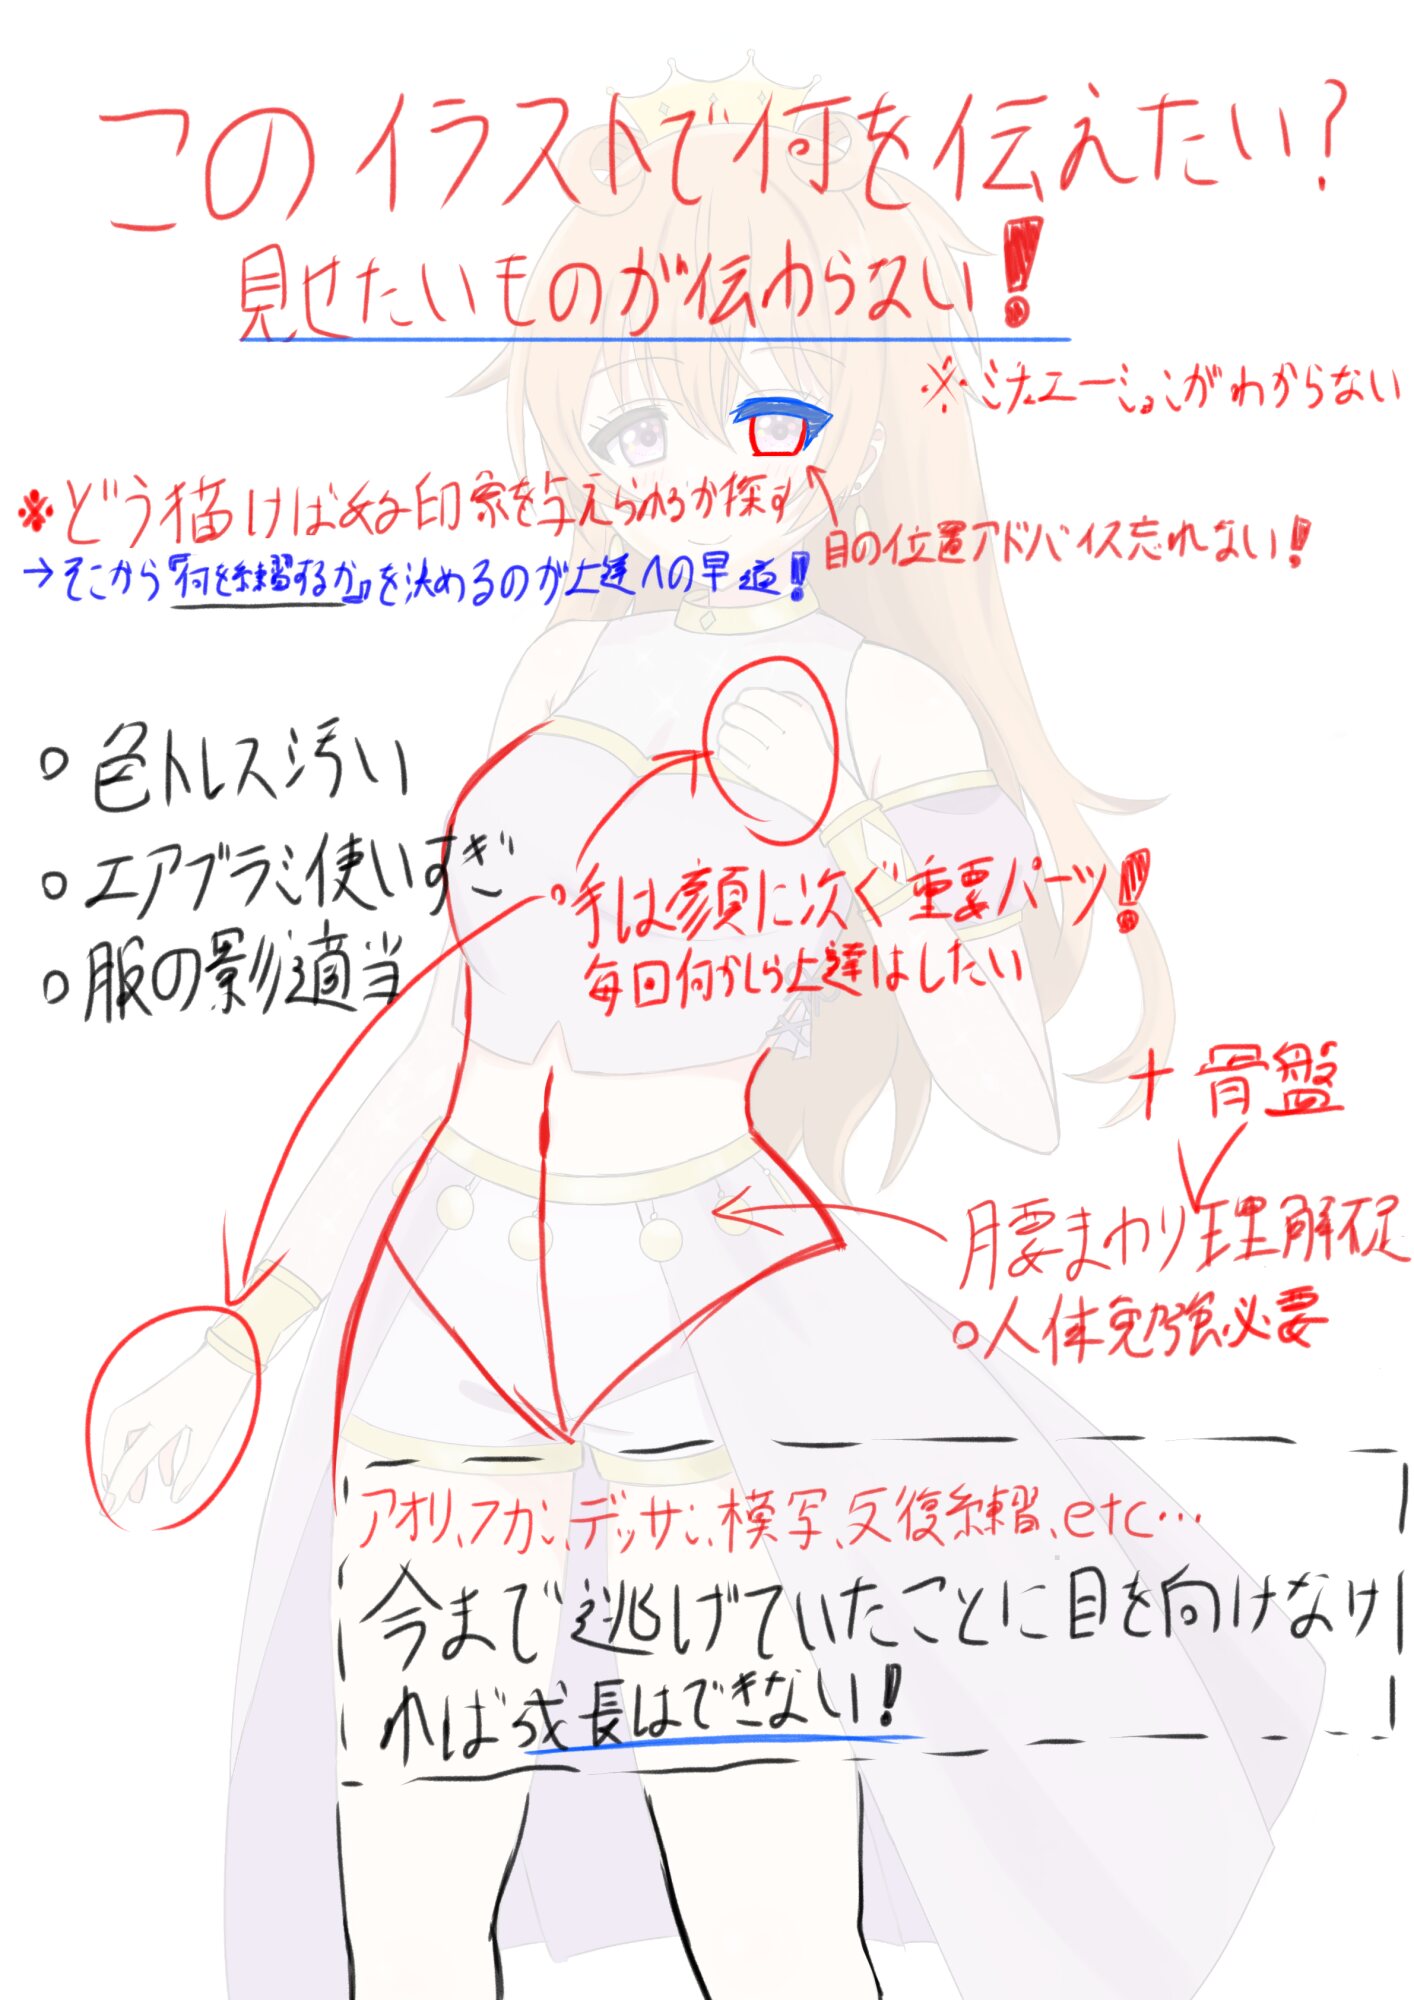 このイラストで何を伝えたい?
見せたいものが伝わらない!
※シチュエーションがわからない
※どう描けばその印象を与えられるか探す
→そこから『何を練習するか』を決めるのが上達への早道!
目の位置アドバイス忘れない!
○色トレス汚い
○エアブラシ使いすぎ
○服の影適当
○手は顔に次ぐ重要パーツ!
毎回何かしら上達はしたい
+骨盤
腰まわり理解不足
○人体勉強必要
アオリ、フカン、デッサン、模写、反復練習、etc…
今まで逃げていたことに目を向けなけ
れば成長はできない!